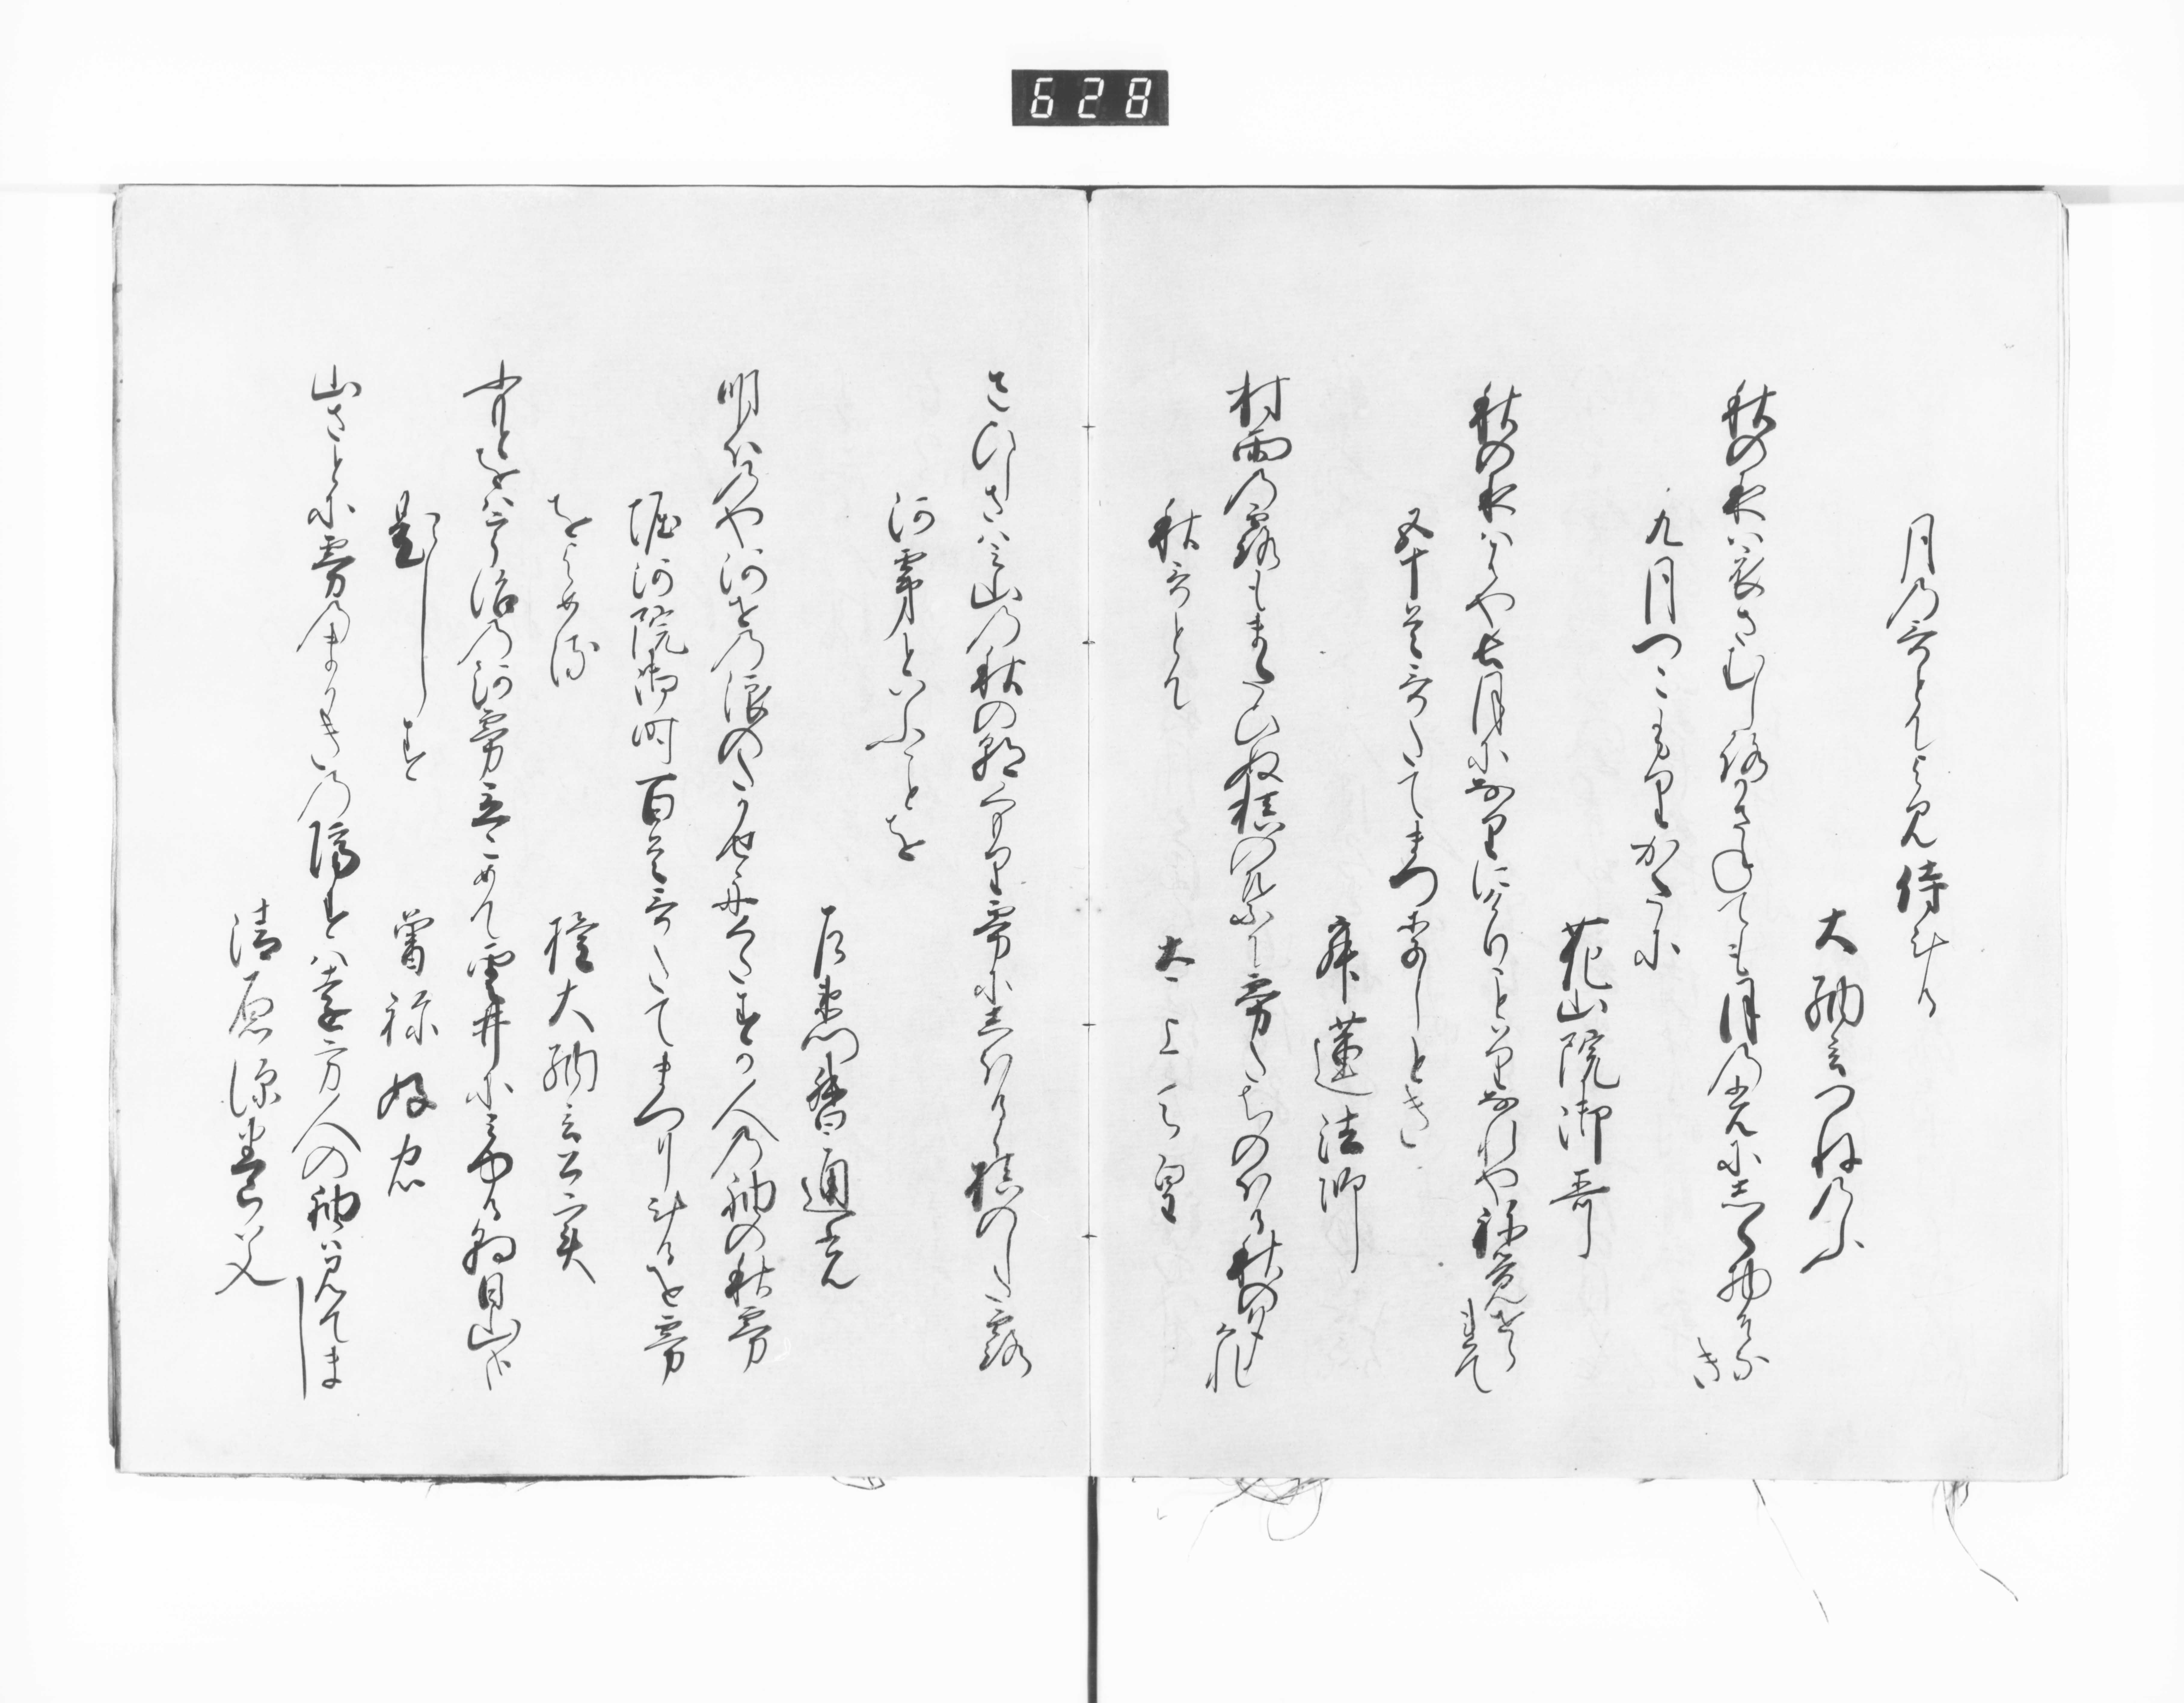 628
月乃哥とてよみ侍ける
大納言つねのふ
秋の夜は衣さむしろかさねても月のひかりにしく物そなき
九月ついたちかたに
花山院御哥
秋の夜ははや長月になりにけりことはりなりや祢覚せらるゝ
五十首哥たてまつりしとき
寂蓮法師
村雨の露もまたひぬ槙の葉に霧たちのほる秋の夕暮
秋哥とて
太上天皇
さひしさはみ山の秋の朝くもり霧にしほるゝ槙のした露
河霧といふことを
左衛門督通光
明ほのや河せの浪のたかせ舟くたすか人の袖の秋霧
堀河院御時百首哥たてまつりけるを霧
をよめる
権大納言公実
ふもとをは宇治の河霧立こめて雲井にみゆる朝日山かな
題しらす
曽祢好忠
山さとに霧のまかきの隔すはをち方人の袖は見てまし
清原深養父